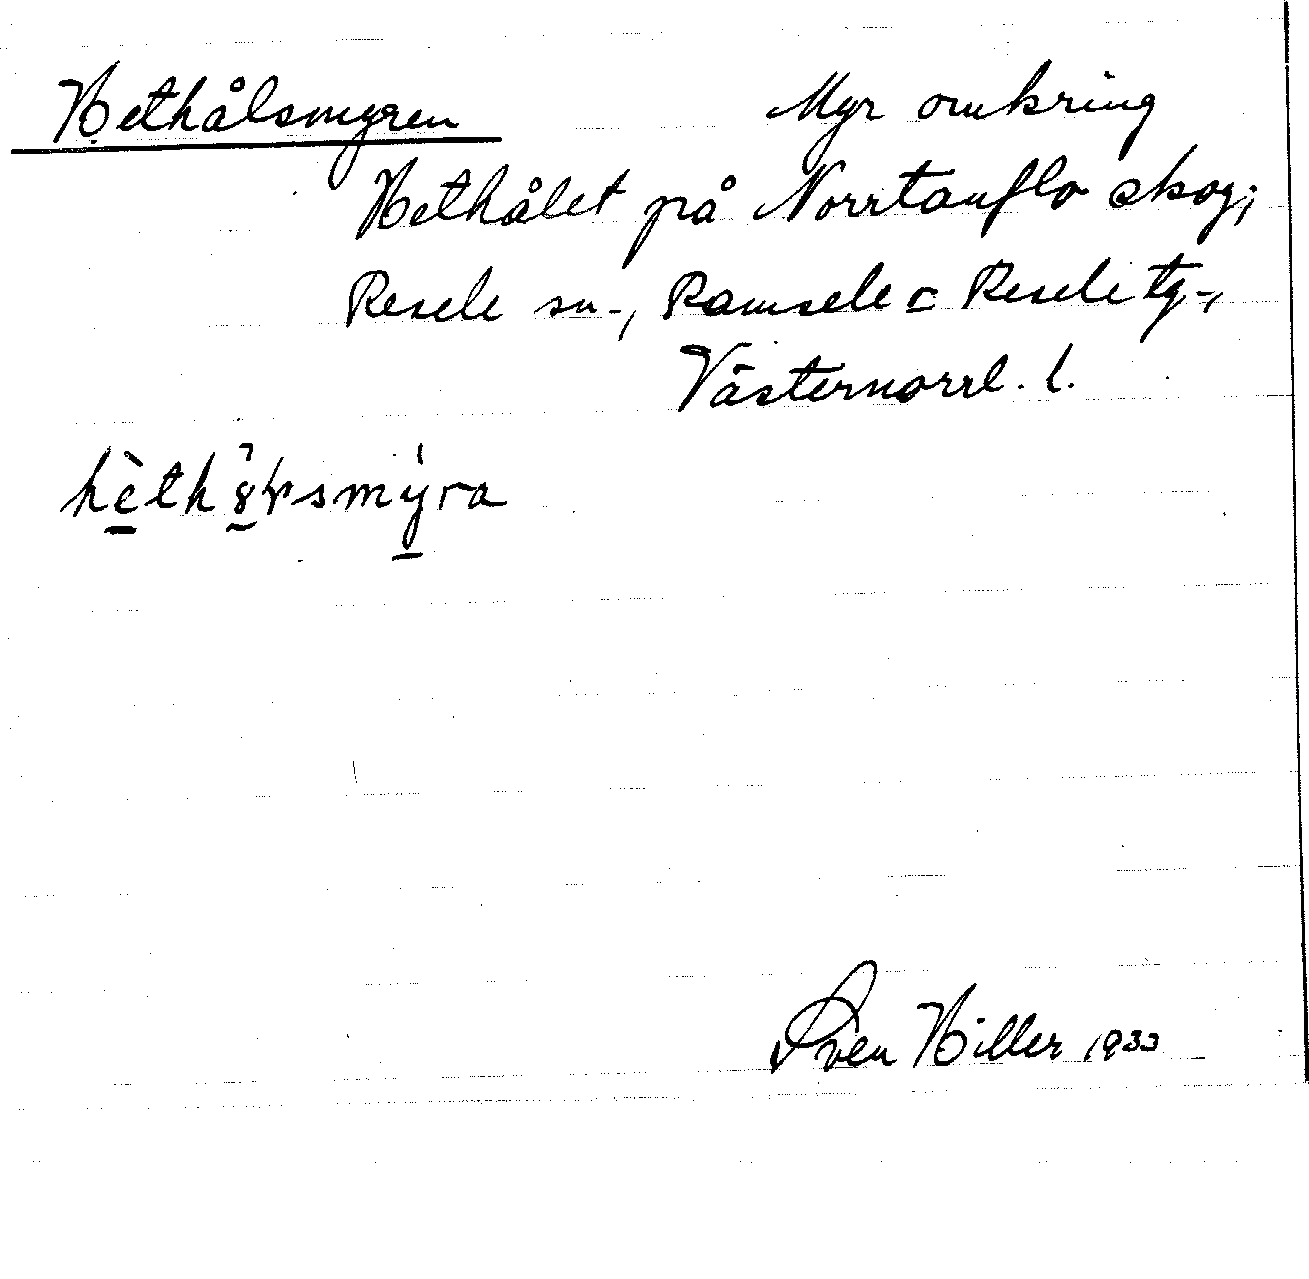 Hethålsmyren Myr omkring
Hethålet på Norrtanflo skog;
Resele sn-, Ramsele o Resele tg-,
Västernorrl. l.
Sven Hiller 1933